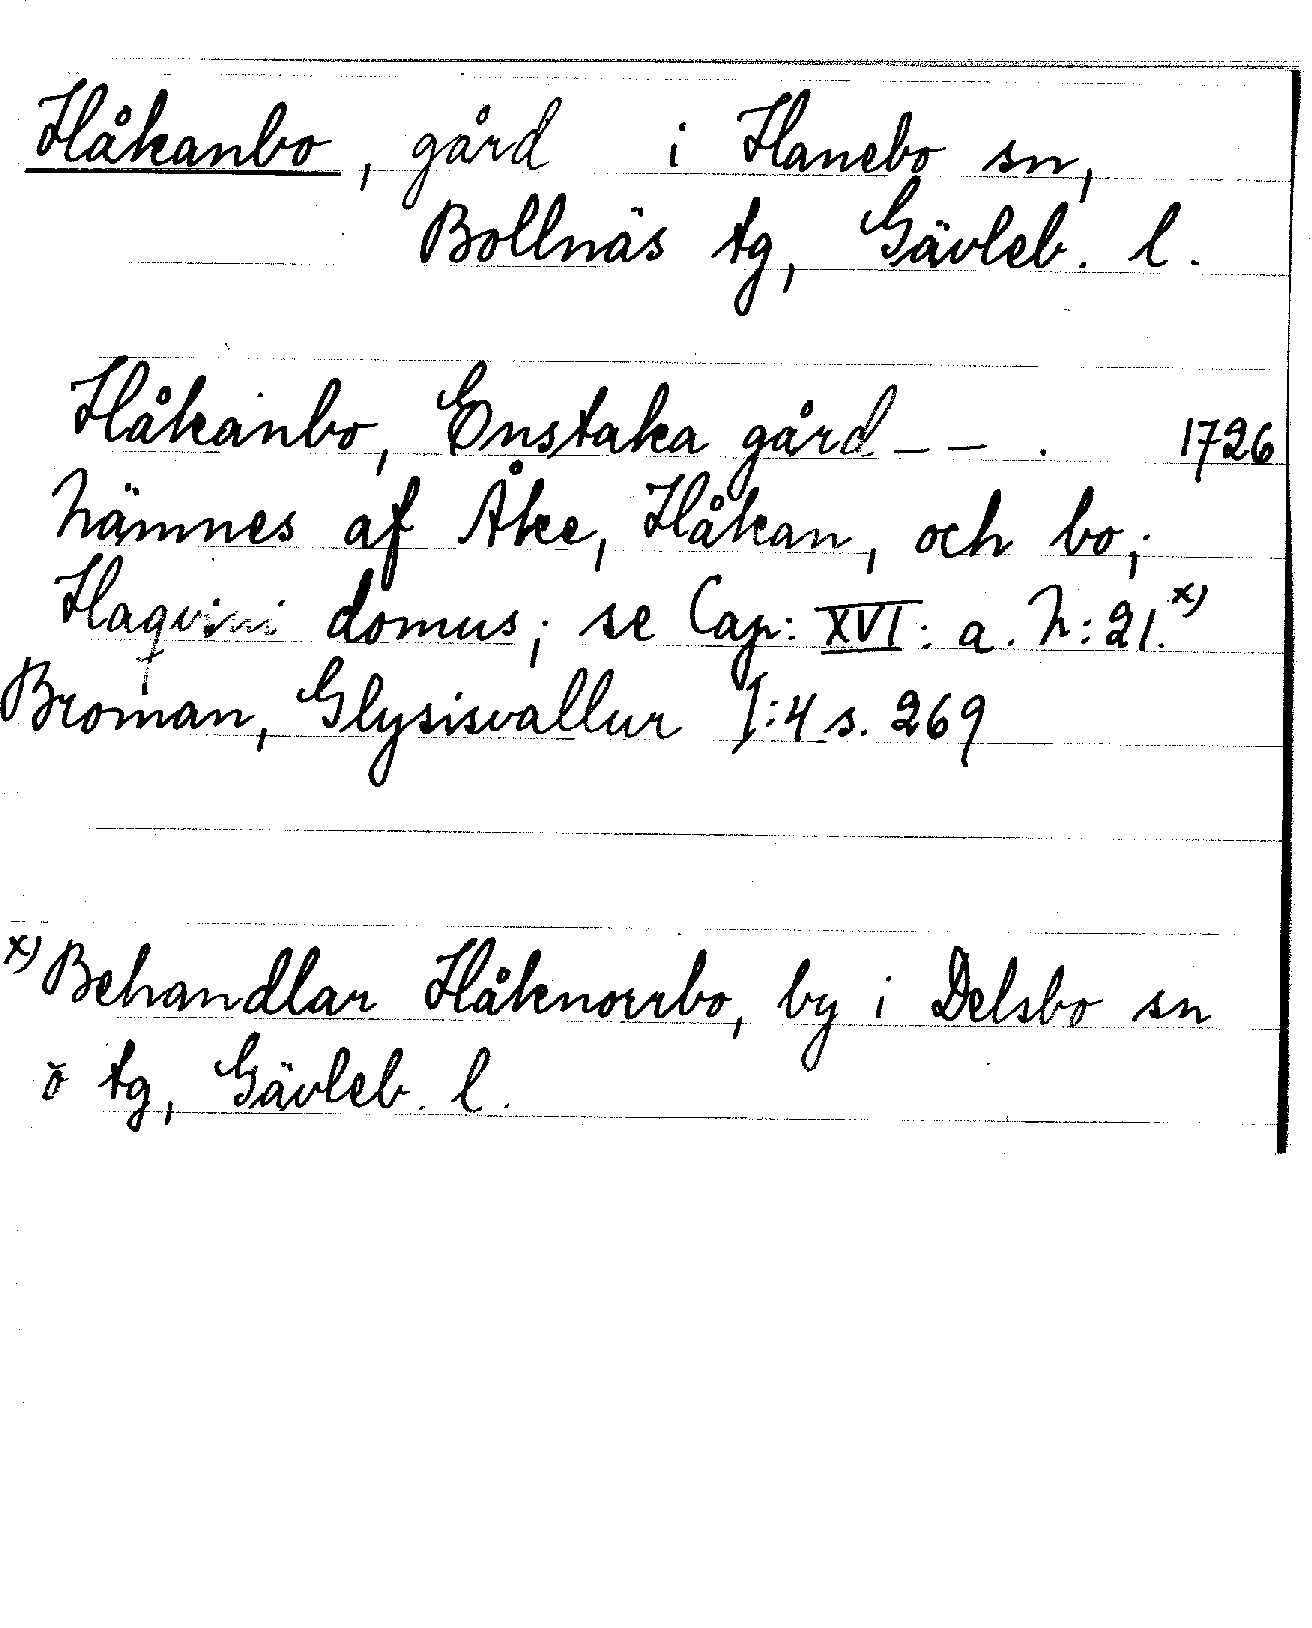 Håkanbo, gård i Hanebo sn,
Bollnäs tg, Gävleb. l.
Håkanbo, Enstaka gård – – . 1726
nämnes af Åke, Håkan, och bo;
Haqvini domus; se Cap: XVI: a. N: 21.x)
Broman, Glysisvallur I:4 s. 269
x) Behandlar Håknorrbo, by i Delsbo sn
o tg, Gävleb. l.